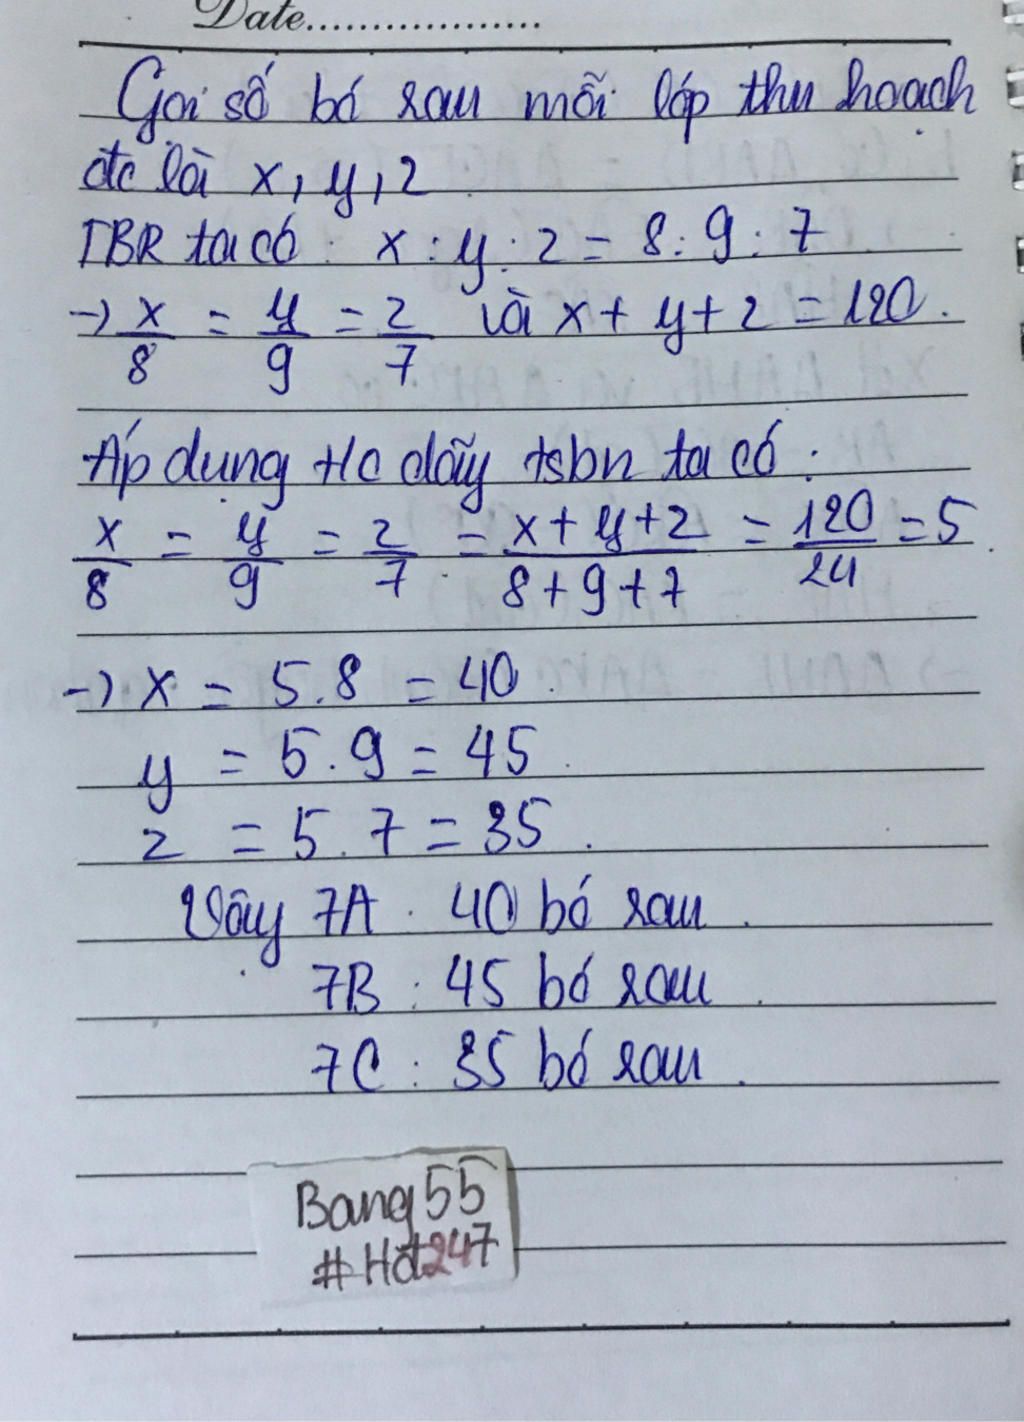 Date..................
Gọi số bó rau mỗi lớp thu hoạch
đc là x, y, z
TBR ta có : x : y : z = 8 : 9 : 7
→ x/8 = y/9 = z/7 và x + y + z = 120.
Áp dụng t/c dãy tsbn ta có :
x/8 = y/9 = z/7 = x + y + z/8 + 9 + 7 = 120/24 = 5.
→ x = 5.8 = 40.
y = 5.9 = 45.
z = 5.7 = 35.
Vậy 7A : 40 bó rau.
7B : 45 bó rau.
7C : 35 bó rau.
Bang55
#Hđ247